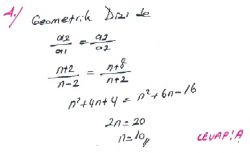 4./ Geometrik Dizi de
a2/a1 = a2/a2
n+2/n-2 = n+8/n+2
n²+4n+4 = n²+6n-16
2n=20
n=10
CEVAP:A